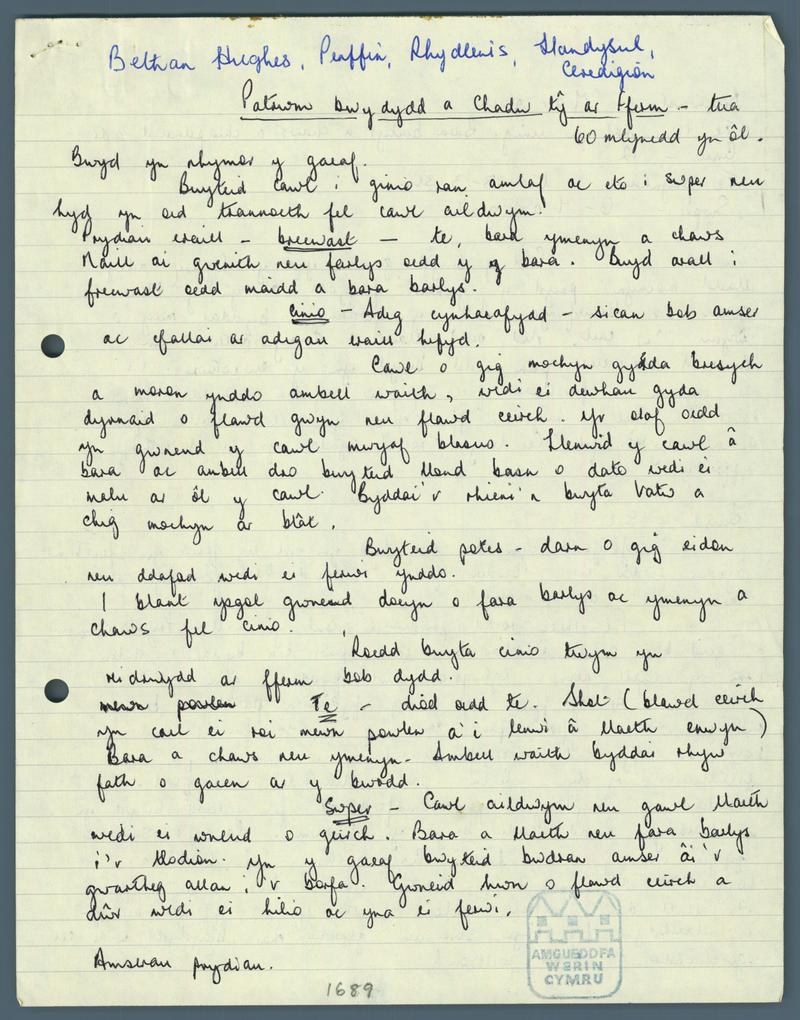 Bethan Hughes, Penffin, Rhydlewis, Llandysul,
Ceredigion
Patrwm bwydydd a Chadw tŷ ar Fferm - tua
60 mlynedd yn ôl.
Bwyd yn nhymor y gaeaf.
Bwyteid cawl i ginio ran amlaf ac eto i swper neu
hyd yn oed trannoeth fel cawl aildwym.
Prydiau eraill - brecwast - te, bara ymenyn a chaws
Naill ai gwenith neu farlys oedd y bara. Bwyd arall i
frecwast oedd maidd a bara barlys.
Cinio - Adeg cynhaeafydd - sican bob amser
ac efallai ar adegau eraill hefyd.
Cawl o gig mochyn gyda bresych
a moron ynddo ambell waith, wedi ei dewhau gyda
dyrnaid o flawd gwyn neu flawd ceirch. Yr olaf oedd
yn gwneud y cawl mwyaf blasus. Llenwid y cawl â
bara ac ambell dro bwyteid llond basn o dato wedi ei
malu ar ôl y cawl. Byddai'r rhieni'n bwyta tatw a
chig mochyn ar blât.
Bwyteid potes - darn o gig eidon
neu ddafad wedi ei ferwi ynddo.
I blant ysgol gwneud docyn o fara barlys ac ymenyn a
chaws fel cinio.
Roedd bwyta cinio twym yn
ar fferm bob dydd.
mewn powlen Te - diod oedd te. Shot (blawd ceirch
yn cael ei roi mewn powlen a'i lenwi â llaeth enwyn)
Bara a chaws neu ymenyn. Ambell waith byddai rhyw
fath o gacen ar y bwrdd.
Swper - Cawl aildwym neu gawl llaeth
wedi ei wneud o geirch. Bara a llaeth neu fara barlys
i'r tlodion. Yn y gaeaf bwyteid bwdran amser âi'r
gwartheg allan i'r borfa. Gwneid hwn o flawd ceirch a
dŵr wedi ei hilio ac yna ei ferwi.
Amserau prydiau.
1689
AMGUEDDFA
WERIN
CYMRU